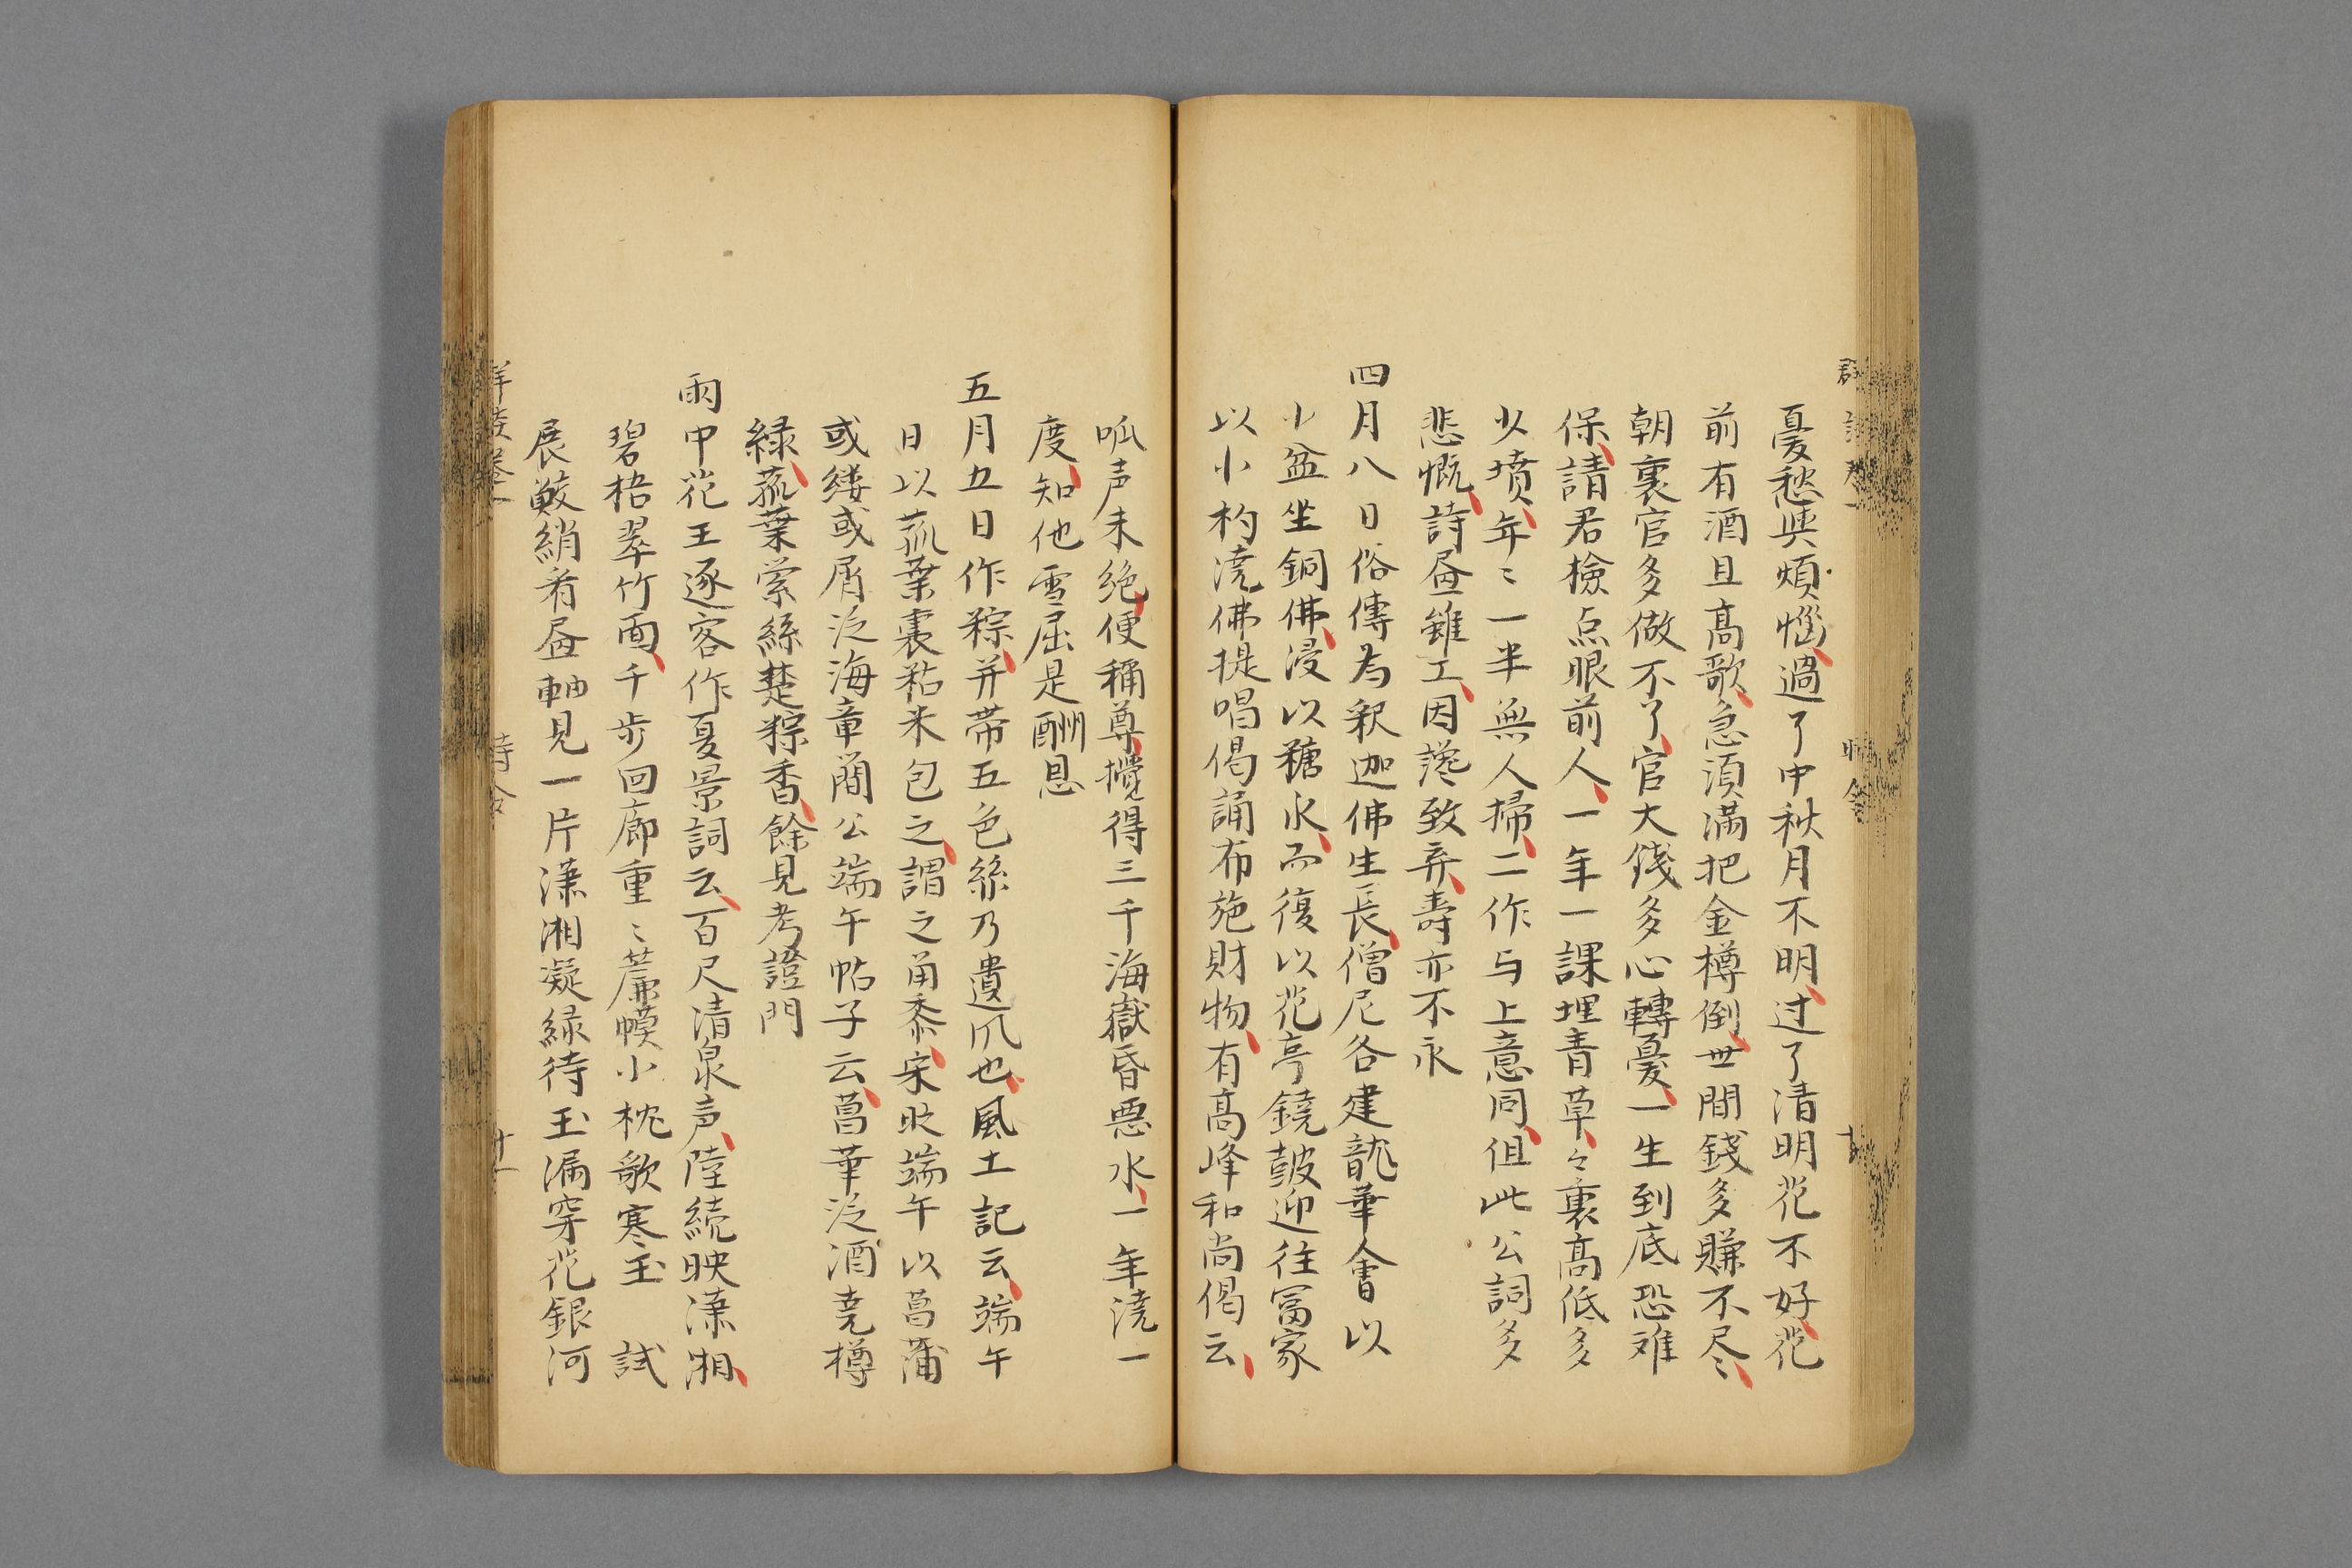 憂愁與煩惱過了中秋月不明过了清明花不好花
前有酒且高歌急須滿把金樽倒世間錢多賺不尽
朝裏官多做不了官大錢多心轉憂一生到底恐难
保請君檢点眼前人一年一課埋青草々裏高低多
少墳年〻一半無人掃二作与上意同但此公詞多
悲慨詩畫雖工因讒致弃壽亦不永
四月八日俗傳為釈迦佛生長僧尼各建龍華會以
小盆坐銅佛浸以糖水而復以花亭鐃鼓迎往富家
以小杓澆佛提唱偈誦布施財物有高峰和尚偈云
呱声未絶便稱尊攪得三千海嶽昏悪水一年澆一
度知他雪屈是酬恩
五月五日作粽并帶五色絲乃遺爪也風土記云端午
日以菰葉裹粘米包之謂之甬黍宋时端午以菖蒲
或縷或屑泛海章簡公端午帖子云菖華泛酒堯樽
緑菰葉縈絲楚粽香餘見考證門
雨中花王逐客作夏景詞云百尺清泉声陸続映瀟湘
碧梧翠竹面千步回廊重〻簾幙小枕歌寒玉 試
展鮫綃看畫軸見一片瀟湘凝緑待玉漏穿花銀河